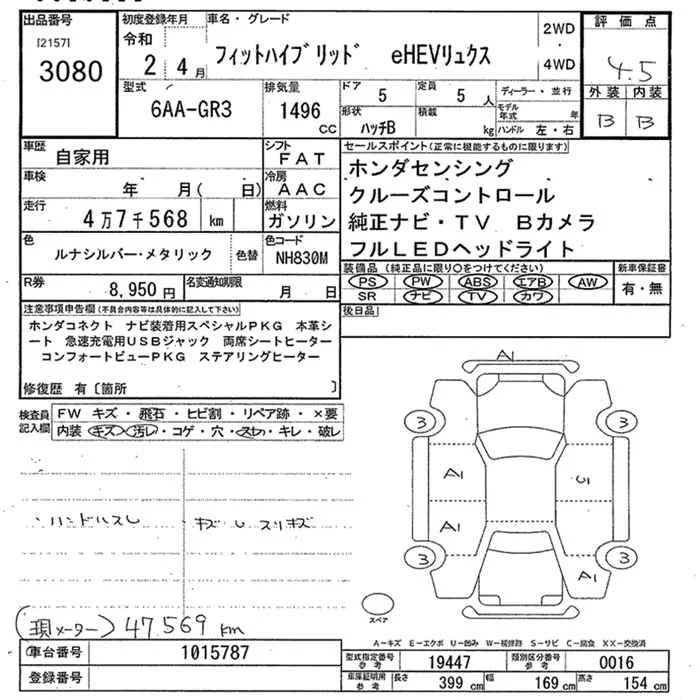 出品番号
[2157]
3080
初度登録年月
令和
2年 4月
車名・グレード
フィットハイブリッド eHEVリュクス
2WD
4WD
評価点
4.5
外装 内装
B B
型式
6AA-GR3
排気量
1496
cc
ドア
5
定員
5人
形状
ハッチB
積載
kg
ディーラー・並行
モデル年式 年
ハンドル 左・右
車歴
自家用
シフト
FAT
車検
年 月( 日)
冷房
AAC
走行
4万7千568 km
燃料
ガソリン
色
ルナシルバー・メタリック
色替
色コード
NH830M
R券
8,950円
名変通知期限
月 日
セールスポイント(正常に機能するものに限ります)
ホンダセンシング
クルーズコントロール
純正ナビ・TV Bカメラ
フルLEDヘッドライト
装備品(純正品に限り○をつけてください)
PS PW ABS エアB AW
SR ナビ TV カワ
新車保証書
有・無
後日品
注意事項申告欄(不具合内容等は具体的に記入して下さい)
ホンダコネクト ナビ装着用スペシャルPKG 本革シ
ート 急速充電用USBジャック 両席シートヒーター
コンフォートビューPKG ステアリングヒーター
修復歴 有〔箇所 〕
検査員
記入欄
FW キズ・飛石・ヒビ割・リペア跡・×要
内装 キズ・汚レ・コゲ・穴・スレ・キレ・破レ
ハンドルスレ
キズ レ スリキズ
(現メーター) 47.569 km
A1
3 3
A1 U1
A1
3 3
A1
スペア
A-キズ E-エクボ U-凹み W-補修跡 S-サビ C-腐食 XX-交換済
車台番号
1015787
登録番号
型式指定番号
参考
19447
類別区分番号
参考
0016
車庫証明用
参考
長さ
399 cm
幅
169 cm
高さ
154 cm